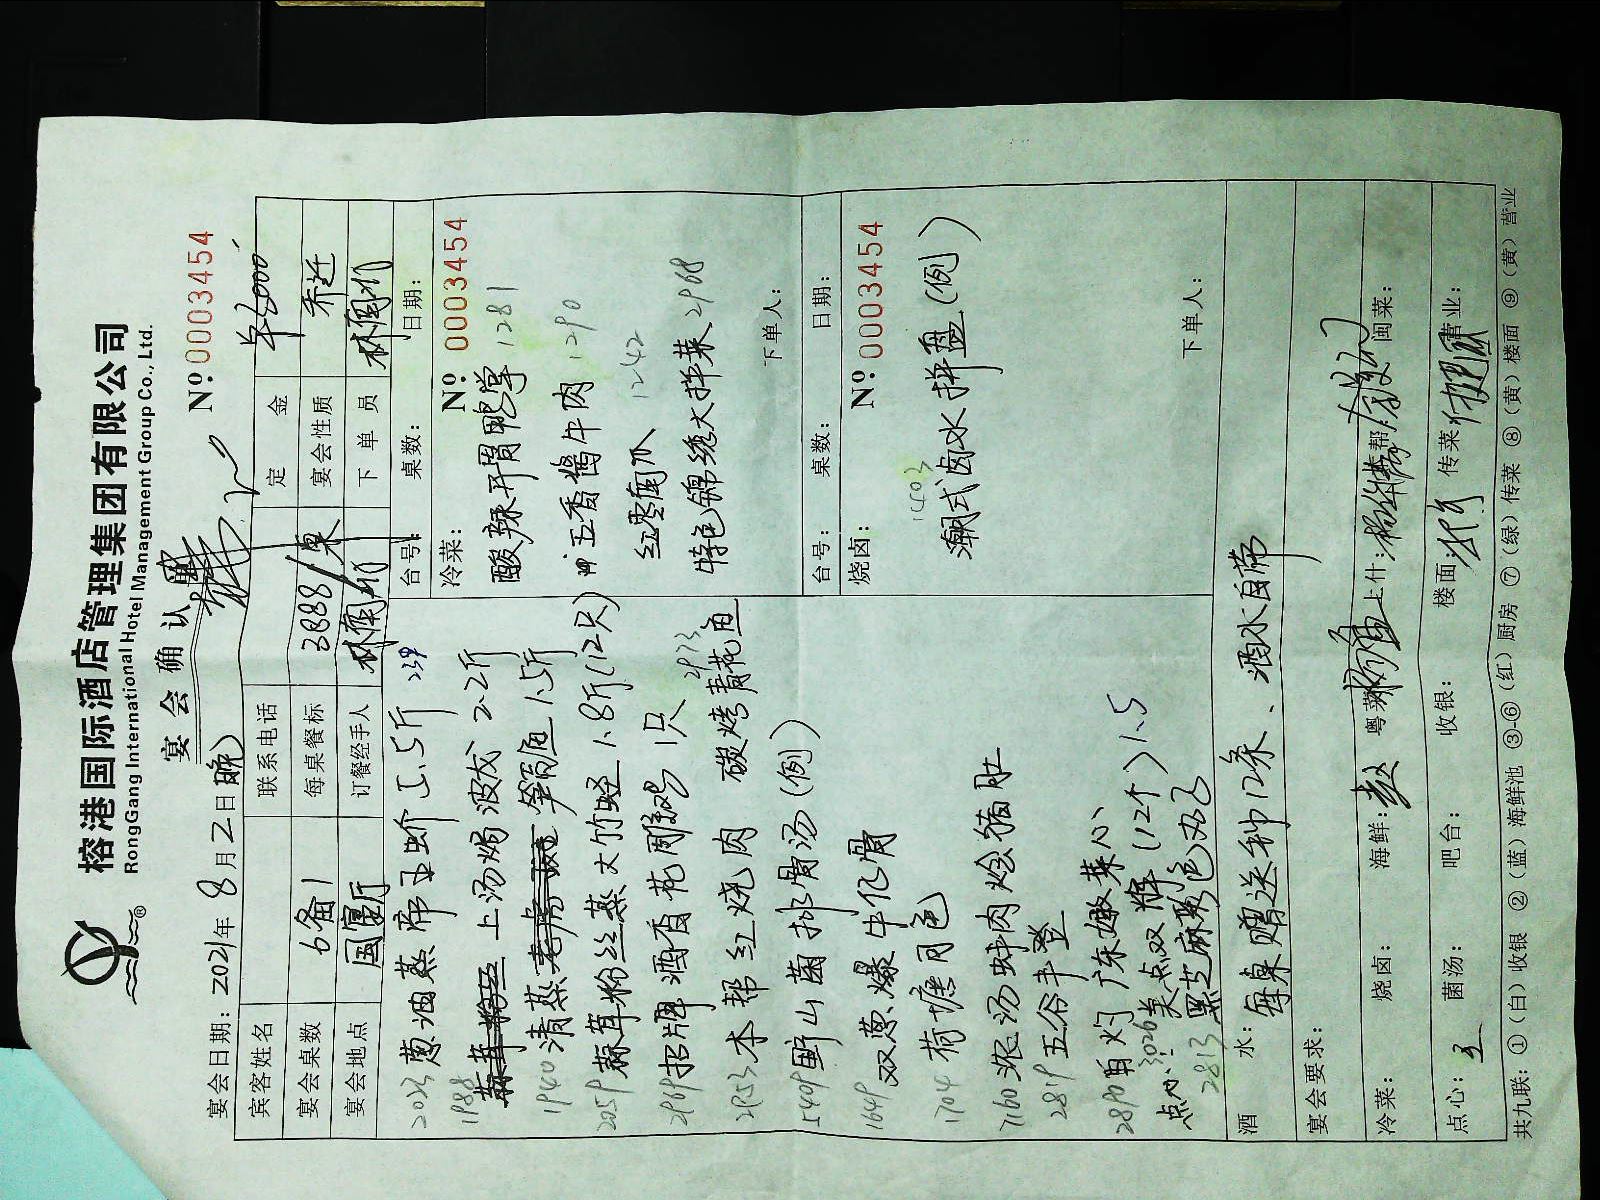 榕港国际酒店管理集团有限公司
RongGang International Hotel Management Group Co., Ltd.
宴会确认单
宴会日期：2021年8月2日晚
Nº 0003454
宾客姓名 联系电话 定金 ¥5000
宴会桌数 6备1 每桌餐标 3888/桌 宴会性质 乔迁
宴会地点 国宴厅 订餐经手人 下单员
台号： 桌数： 日期：
冷菜： Nº 0003454
酸辣开胃鸭掌 1281
五香酱牛肉 1290
1242
特色锦绣大拼菜 2968
下单人：
台号： 桌数： 日期：
烧卤： Nº 0003454
1403
潮式卤水拼盘（例）
下单人：
2023 葱油蒸
1988 上汤焗波龙 2.2斤
1940 清蒸 1.5斤
2059 蒜茸粉丝蒸大竹蛏 1.8斤（12只）
2969 招牌酒香花雕鸡 1只 2973
2953 本帮红烧肉 碳烤青花鱼
5409 野山菌排骨汤（例）
1649 双葱爆牛仔骨
1704 荷塘月色
7160 浓汤蚌肉烩猪肚
2819 五谷丰登
2890 白灼广东嫩菜心
点心：3026 美点双辉（12个）1.5
2813 黑芝麻彩色丸子
酒水： 每桌赠送 酒水自带
宴会要求：
冷菜： 烧卤： 海鲜： 粤菜 上什： 帮 闽菜：
点心： 菌汤： 吧台： 收银： 楼面： 传菜 营业：
共九联：①（白）收银 ②（蓝）海鲜池 ③-⑥（红）厨房 ⑦（绿）传菜 ⑧（黄）楼面 ⑨（黄）营业